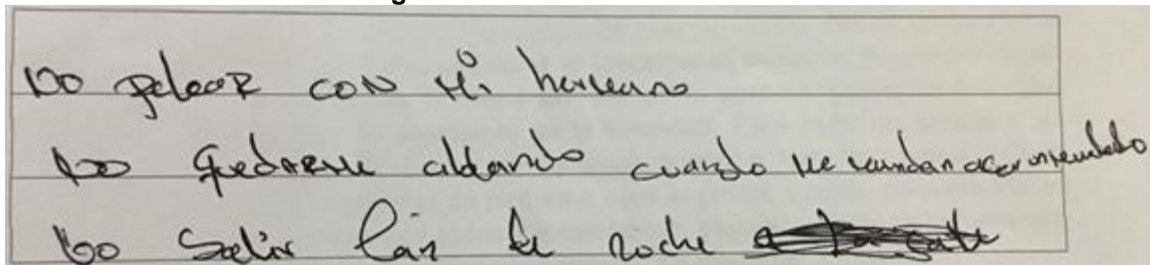 No pelear con mi hermano
No quedarme ablando cuando me mandan acer un mandado
No salir tan de noche